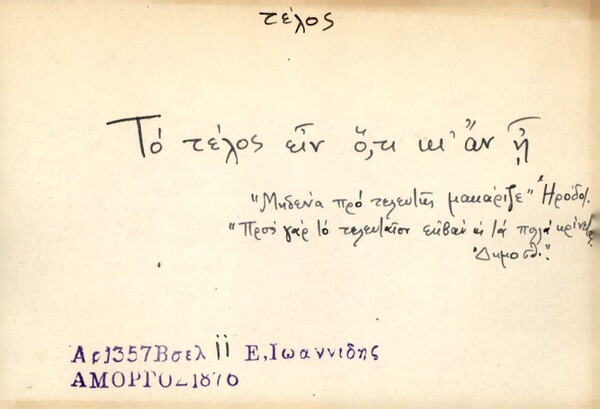 τέλος
Τό τέλος εἶν ὅ,τι κι' ἄν ᾖ
"Μηδένα πρό τελευτῆς μακάριζε" Ἡρόδοτ.
"Πρός γάρ τό τελευταῖον ἐκβάν κι τά πολλά κρίνεται
Δημοσθ."
Αρ1357Βσελ 11 Ε,Ιωαννιδης
ΑΜΟΡΓΟΣ1876